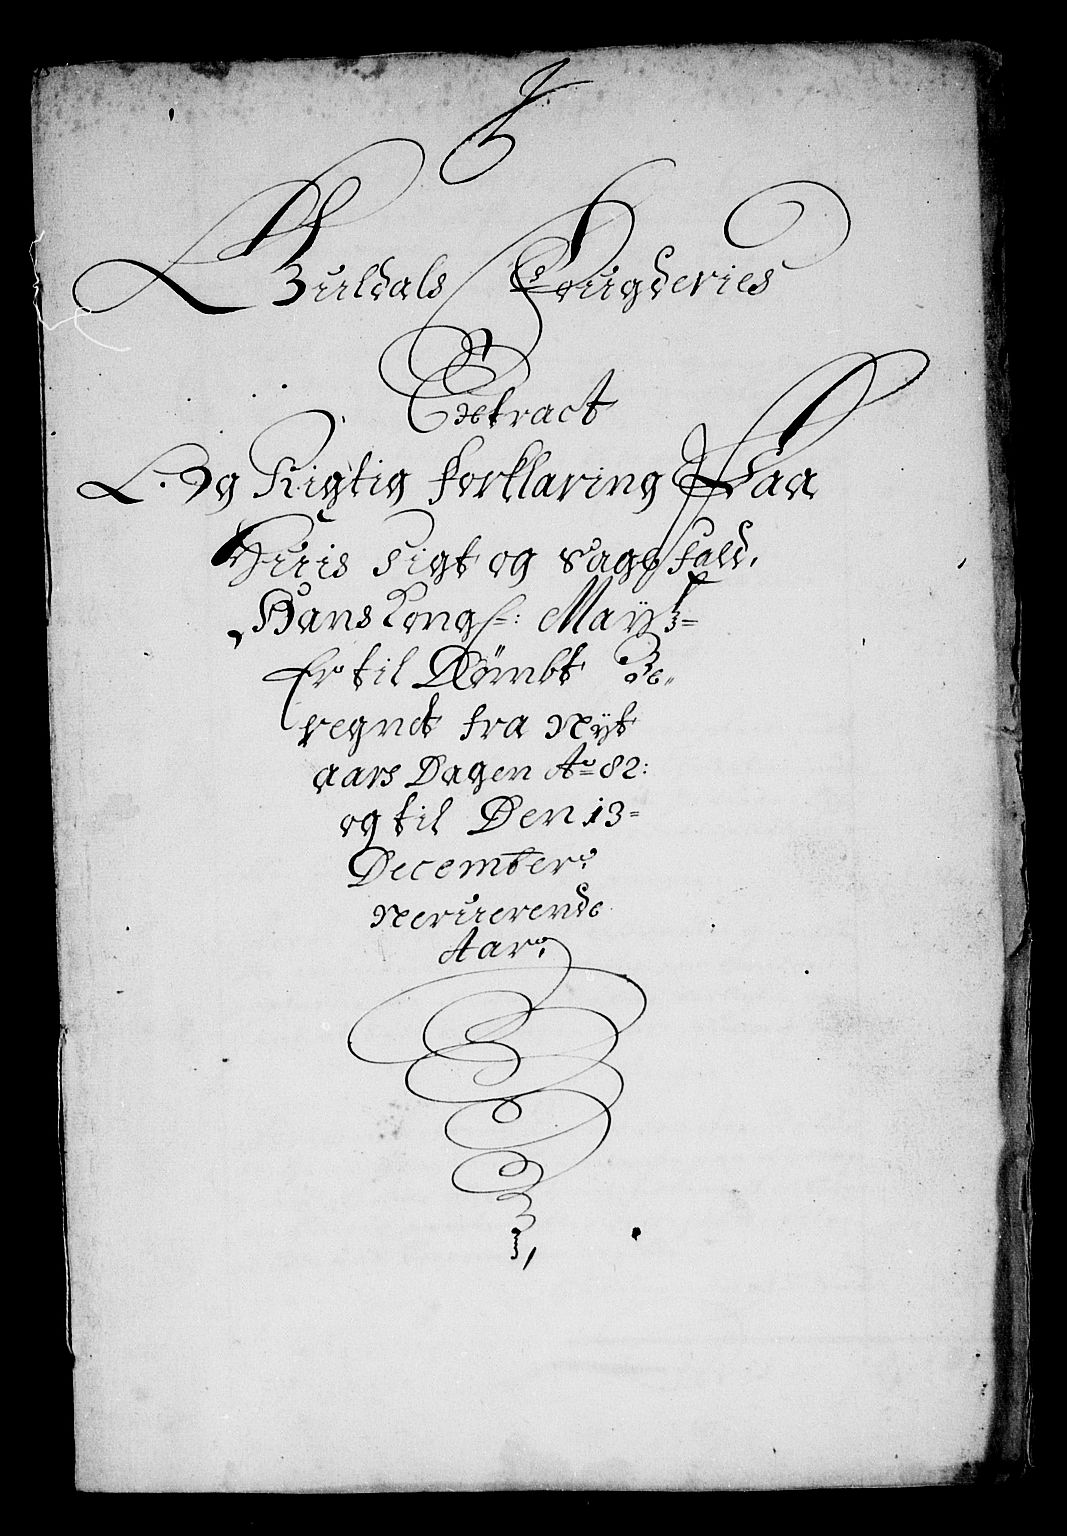 Guldals Fougderies
Extract
Og Rigtig forklaring Paa
Huis Sigt og Sagefald,
Hans Kongl: Maytz=
Er til Dømbt Be„
regnet fra Nyt
aars Dagen Ao 82:
og til Den 13=
December:
Neruerende
Aar: